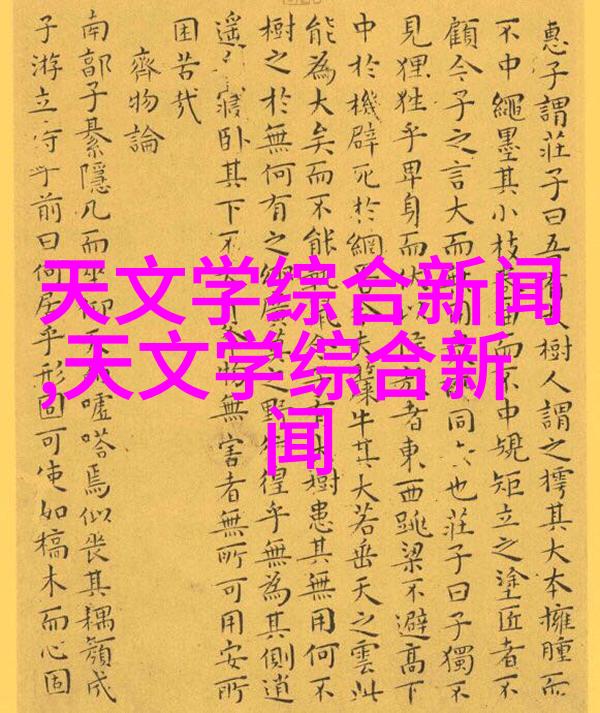 天文学综合新闻
,天文学综合新
闻
惠子謂莊子曰樹人謂之樗其大本擁腫而
不中繩墨其小枝而不中規矩立之塗匠者不
顧今子之言大而同也莊子曰子獨不
見狸狌乎卑身而者東西跳梁不避高下
中於機辟死於網夫斄牛其大若垂天之雲此
能為大矣而不能樹患其無用何不
樹之於無何有之之野徨乎無為其側逍
遙寢臥其下不物無害者無所可用安所
困苦哉
齊物論
南郭子綦隱几而坐噓嗒焉似喪其耦顏成
子游立侍乎前曰何居乎形固可使如槁木而心固